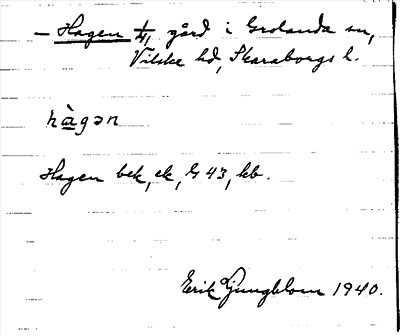 – Hagen 1/4 gård i Grolanda sn,
Vilske hd, Skaraborgs l.
hàgən
Hagen bek, ek, G 43, kb.
Erik Ljungblom 1940.